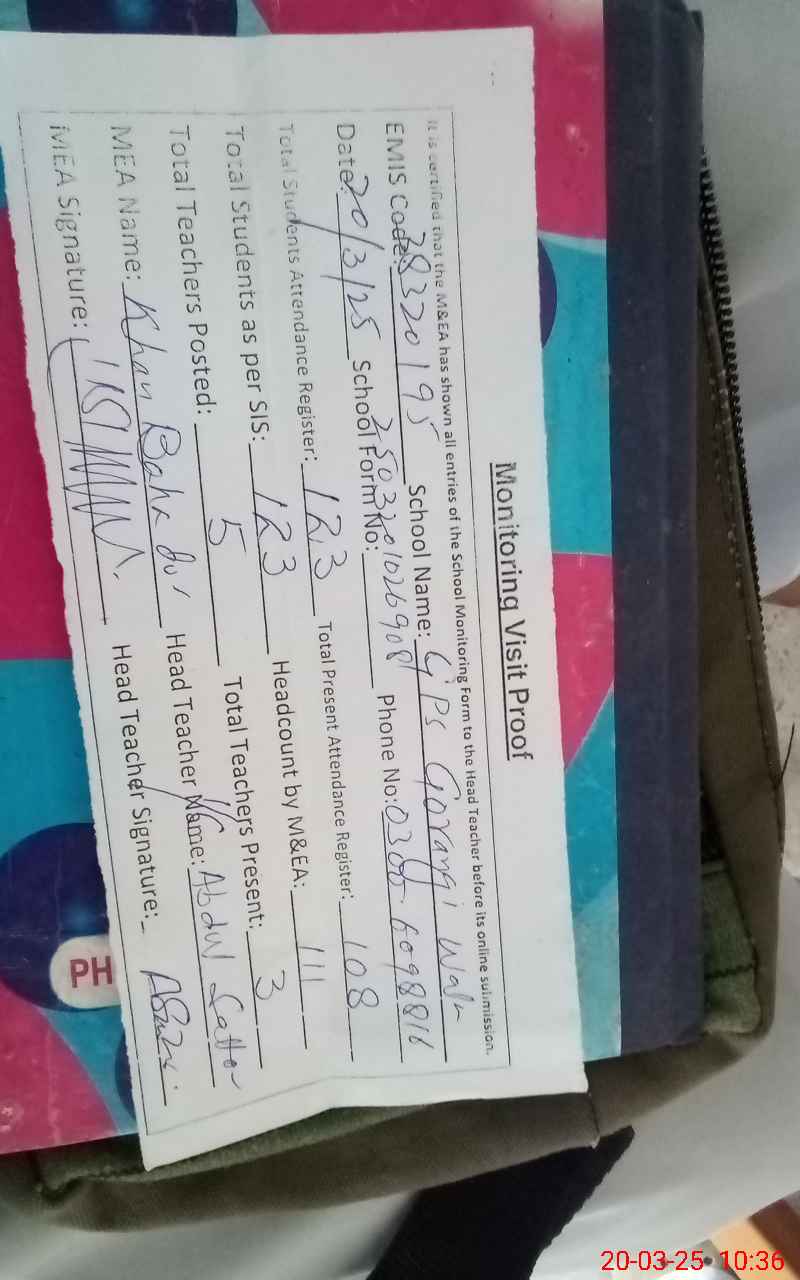 Monitoring Visit Proof
It is certified that the M&EA has shown all entries of the School Monitoring Form to the Head Teacher before its online submission.
EMIS Code: 38320195 School Name: GPS Gorangi Wala
Date: 20/3/25 School Form No: 2503201026908 Phone No: 0300-6098816
Total Students Attendance Register: 123 Total Present Attendance Register: 108
Total Students as per SIS: 123 Headcount by M&EA: 111
Total Teachers Posted: 5 Total Teachers Present: 3
MEA Name: Khan Bahadur Head Teacher Name: Abdul Sattar
MEA Signature: Head Teacher Signature:
PH
20-03-25 10:36